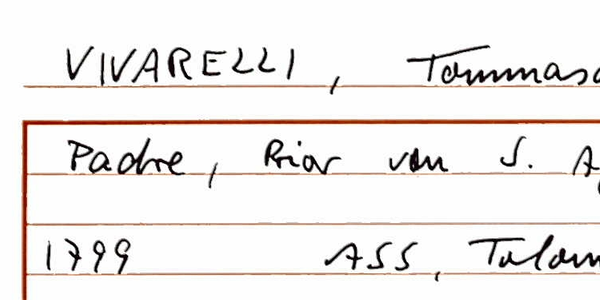 VIVARELLI, Tommaso
Padre, Prior von S.
1799 ASS, Talam